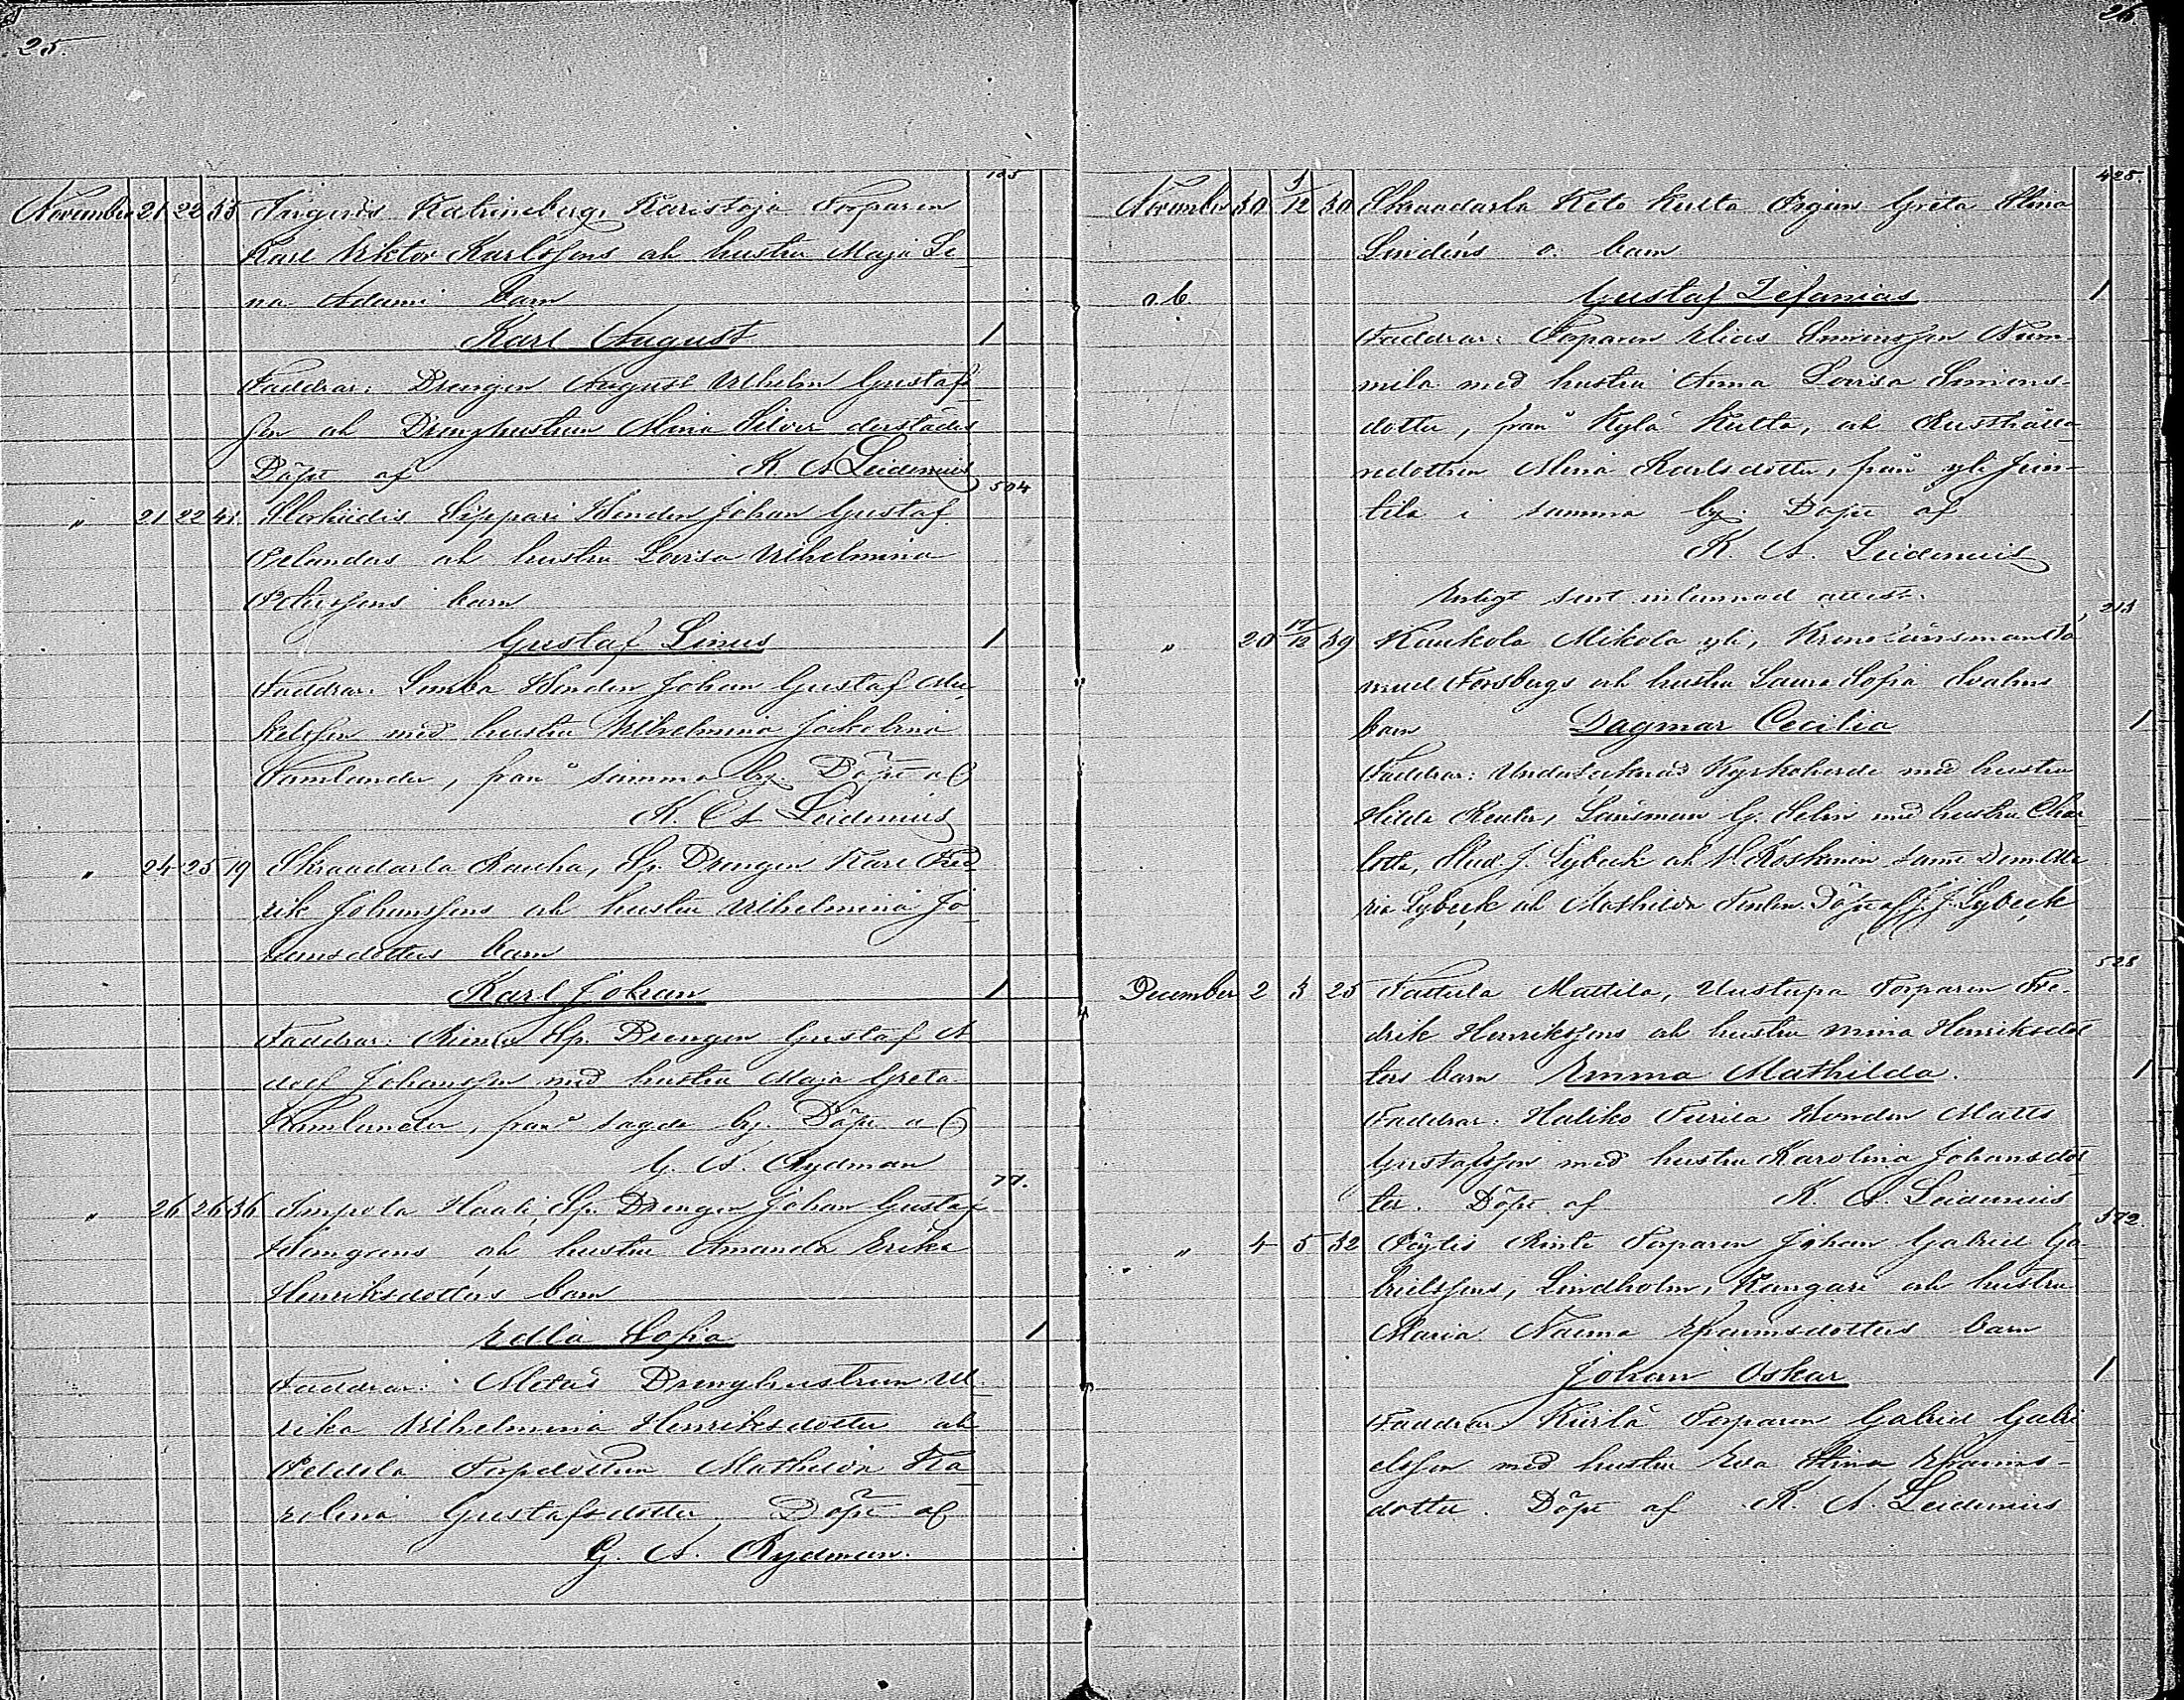 25.
105
November 21 22 33 Karineberg, Karistoja Torparen
Karl Viktor Karlssons och hustru Maja Le-
na Adami barn
Karl August 1
Faddrar: Drengen August Vilhelm Gustafs-
son och Drenghustrun Mina Silver derstädes
Döpt af K. A. Leidenius
504
" 21 22 41 Sippari Bonden Johan Gustaf
och hustru Lovisa Vilhelmina
barn
Gustaf Linus 1
Faddrar: Bonden Johan Gustaf Mi-
kelsson med hustru Vilhelmina
från samma by. Döpt af
K. A. Leidenius
" 24 25 19 Skraadarla Sp. Drengen Karl Fred-
rik Johanssons och hustru Vilhelmina Jo-
hansdotters barn
Karl Johan 1
Faddrar: Sp. Drengen Gustaf A-
dolf Johansson med hustru Maja Greta
från sagde by. Döpt af
G. A. Rydman
77.
" 26 26 36 Impola Haali, Sp. Drengen Johan Gustaf
och hustru Amanda Erika
Henriksdotters barn
Edla Sofia 1
Faddrar: Drenghustrun Ul-
rika Vilhelmina Henriksdotter och
Torpdottren Mathilda Ka-
rolina Gustafsdotter. Döpt af
G. A. Rydman.
26.
425.
November 30 1/12 30 Skraadarla Keto Kulta Pigan Greta Stina
Lindéns o. barn
o. b. Gustaf Zefanias 1
Faddrar: Torparen Elias Simonsson Num-
mila med hustru Anna Lovisa Simons-
dotter, från Kylä Kulta, och Rusthålla-
redottren Mina Karlsdotter, från yli Jun-
tila i samma by. Döpt af
K. A. Leidenius
Enligt sent inlemnad attest.
213
" 20 17/12 39 Kaukola Mikola yli, Krono Länsman Sa-
muel Forsbergs och hustru Laura Sofia
barn Dagmar Cecilia 1
Faddrar: Undertecknad Kyrkoherde med hustru
Hilda Länsman G. Selin med hustru Char-
lotta, Stud. J. Lybeck och Koskinen samt Dem. Ma-
ria Lybeck och Mathilda Döpt af J. J. Lybeck
528
December 2 3 25 Mattila, Uustupa Torparen Fre-
drik Henrikssons och hustru Mina Henriksdot-
ters barn Emma Mathilda. 1
Faddrar: Haliko Bonden Matts
Gustafsson med hustru Karolina Johansdot-
ter. Döpt af K. A. Leidenius
372.
" 4 5 32 Pöytis Torparen Johan Gabriel Ga-
brielssons, Lindholm, Kangari och hustru
Maria Naema Efraimsdotters barn
Johan Oskar 1
Faddrar: Kiirla Torparen Gabriel Gabri-
elsson med hustru Eva Stina Efraims-
dotter. Döpt af K. A. Leidenius